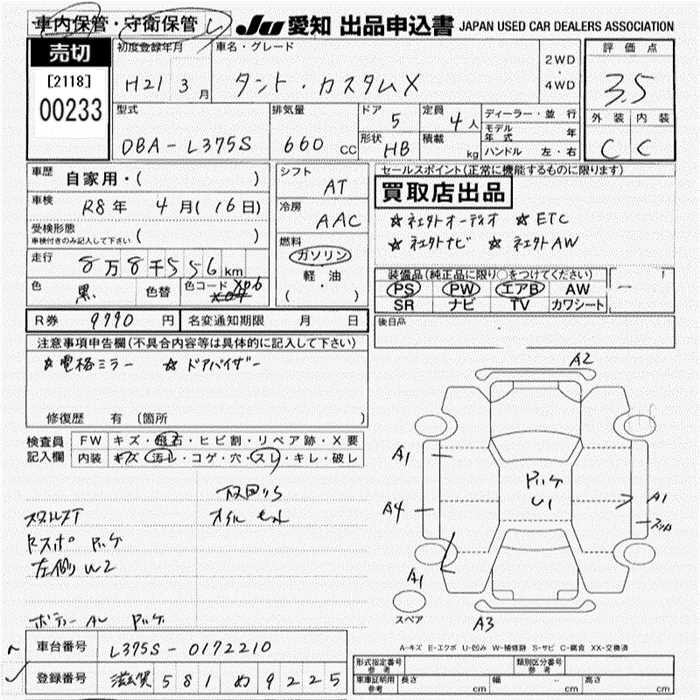 車内保管・守衛保管
JU 愛知 出品申込書 JAPAN USED CAR DEALERS ASSOCIATION
売切
[2118]
00233
初度登録年月 車名・グレード
H21 3月 タント・カスタムX 2WD・4WD
評価点
3.5
型式 排気量 ドア 定員 ディーラー・並行
DBA-L375S 660cc 5 4人
形状 積載 モデル年式 年
HB kg ハンドル 左・右
外装 内装
C C
車歴 自家用・( )
車検 R8年 4月(16日)
受検形態 ( )
車検付きのみ記入して下さい
走行 8万8千556km
色 黒 色替 色コード X06
シフト AT
冷房 AAC
燃料 ガソリン
軽・油
( ・ )
セールスポイント(正常に機能するものに限ります)
買取店出品
☆社外オーディオ ☆ETC
☆社外ナビ ☆社外AW
装備品(純正品に限り○をつけてください)
PS PW エアB AW
SR ナビ TV カワシート
後日品
R券 9790円 名変通知期限 月 日
注意事項申告欄(不具合内容等は具体的に記入して下さい)
☆電格ミラー ☆ドアバイザー
修復歴 有 (箇所 )
検査員 FW キズ・飛石・ヒビ割・リペア跡・X要
記入欄 内装 キズ・汚レ・コゲ・穴・スレ・キレ・破レ
A2
A1
A4
U1
A1
A1
A3
スペア
左側 W2
A-キズ E-エクボ U-凹み W-補修跡 S-サビ C-腐食 XX-交換済
車台番号 L375S-0172210
登録番号 滋賀 581 め 9225
形式指定番号 参考 類別区分番号 参考
車庫証明用 参考 長さ cm 幅 cm 高さ cm